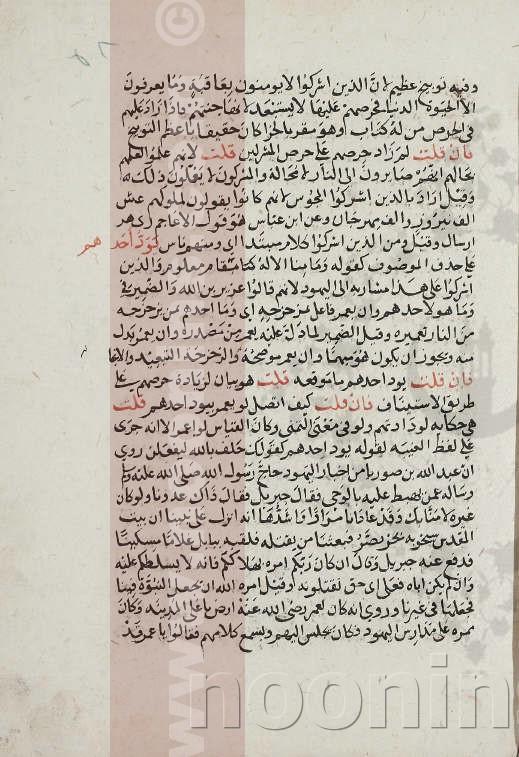 وفيه توبيخ عظيم لان الذين اشركوا لا يومنون بعاقبة وما يعرفون
الا الحيوة الدنيا فحرصهم عليها لا يستبعد لانها جنتهم فاذا زاد عليهم
في الحرص من له كتاب وهو مقر بالجزا كان حقيقا باعظم التوبيخ
فان قلت لم زاد حرصهم على حرص المشركين قلت لانهم علموا لعلمهم
بحالهم انهم صايرون الى النار لا محالة والمشركون لا يعلمون ذلك
وقيل اراد بالذين اشركوا المجوس لانهم كانوا يقولون لملوكهم عش
الف نيروز والف مهرجان وعن ابن عباس هو قول الاعاجم زي هزر
ارسال وقيل ومن الذين اشركوا كلام مبتدا اي ومنهم ناس يود احدهم
على حذف الموصوف كقوله وما منا الا له مقام معلوم والذين
اشركوا على هذا مشار به الى اليهود لانهم قالوا عزير بن الله والضمير في
وما هو لاحدهم وان يعمر فاعل بمزحزحه اي وما احدهم بمن يزحزحه
من النار تعميره وقيل الضمير لما دل عليه يعمر من مصدره وان يعمر بدل
منه ويجوز ان يكون هو مبهما وان يعمر موضحه والزحزحة التبعيد والانحا
فان قلت يود احدهم ما موقعه قلت هو بيان لزيادة حرصهم على
طريق الاستيناف فان قلت كيف اتصل لو يعمر بيود احدهم قلت
هي حكاية لودادتهم ولو في معنى التمني وكان القياس لو اعمر الا انه جرى
على لفظ الغيبة لقوله يود احدهم كقولك حلف بالله ليفعلن روي
ان عبد الله بن صوريا من احبار اليهود حاج رسول الله صلى الله عليه وسلم
وساله عمن يهبط عليه بالوحي فقال جبريل فقال ذاك عدونا ولو كان
غيره لامنا بك وقد عادانا مرارا واشدها انه انزل على نبينا ان بيت
المقدس سيخربه بختنصر فبعثنا من يقتله فلقيه ببابل غلاما مسكينا
فدفع عنه جبريل وقال ان كان ربكم امره بهلاككم فانه لا يسلطكم عليه
وان لم يكن اياه فعلى اي حق تقتلونه وقيل امره الله ان يجعل النبوة فينا
فجعلها في غيرنا وروي انه كان لعمر رضي الله عنه ارض باعلى المدينه وكان
ممره على مدارس اليهود فكان يجلس اليهم ويسمع كلامهم فقالوا يا عمر قد
noonin